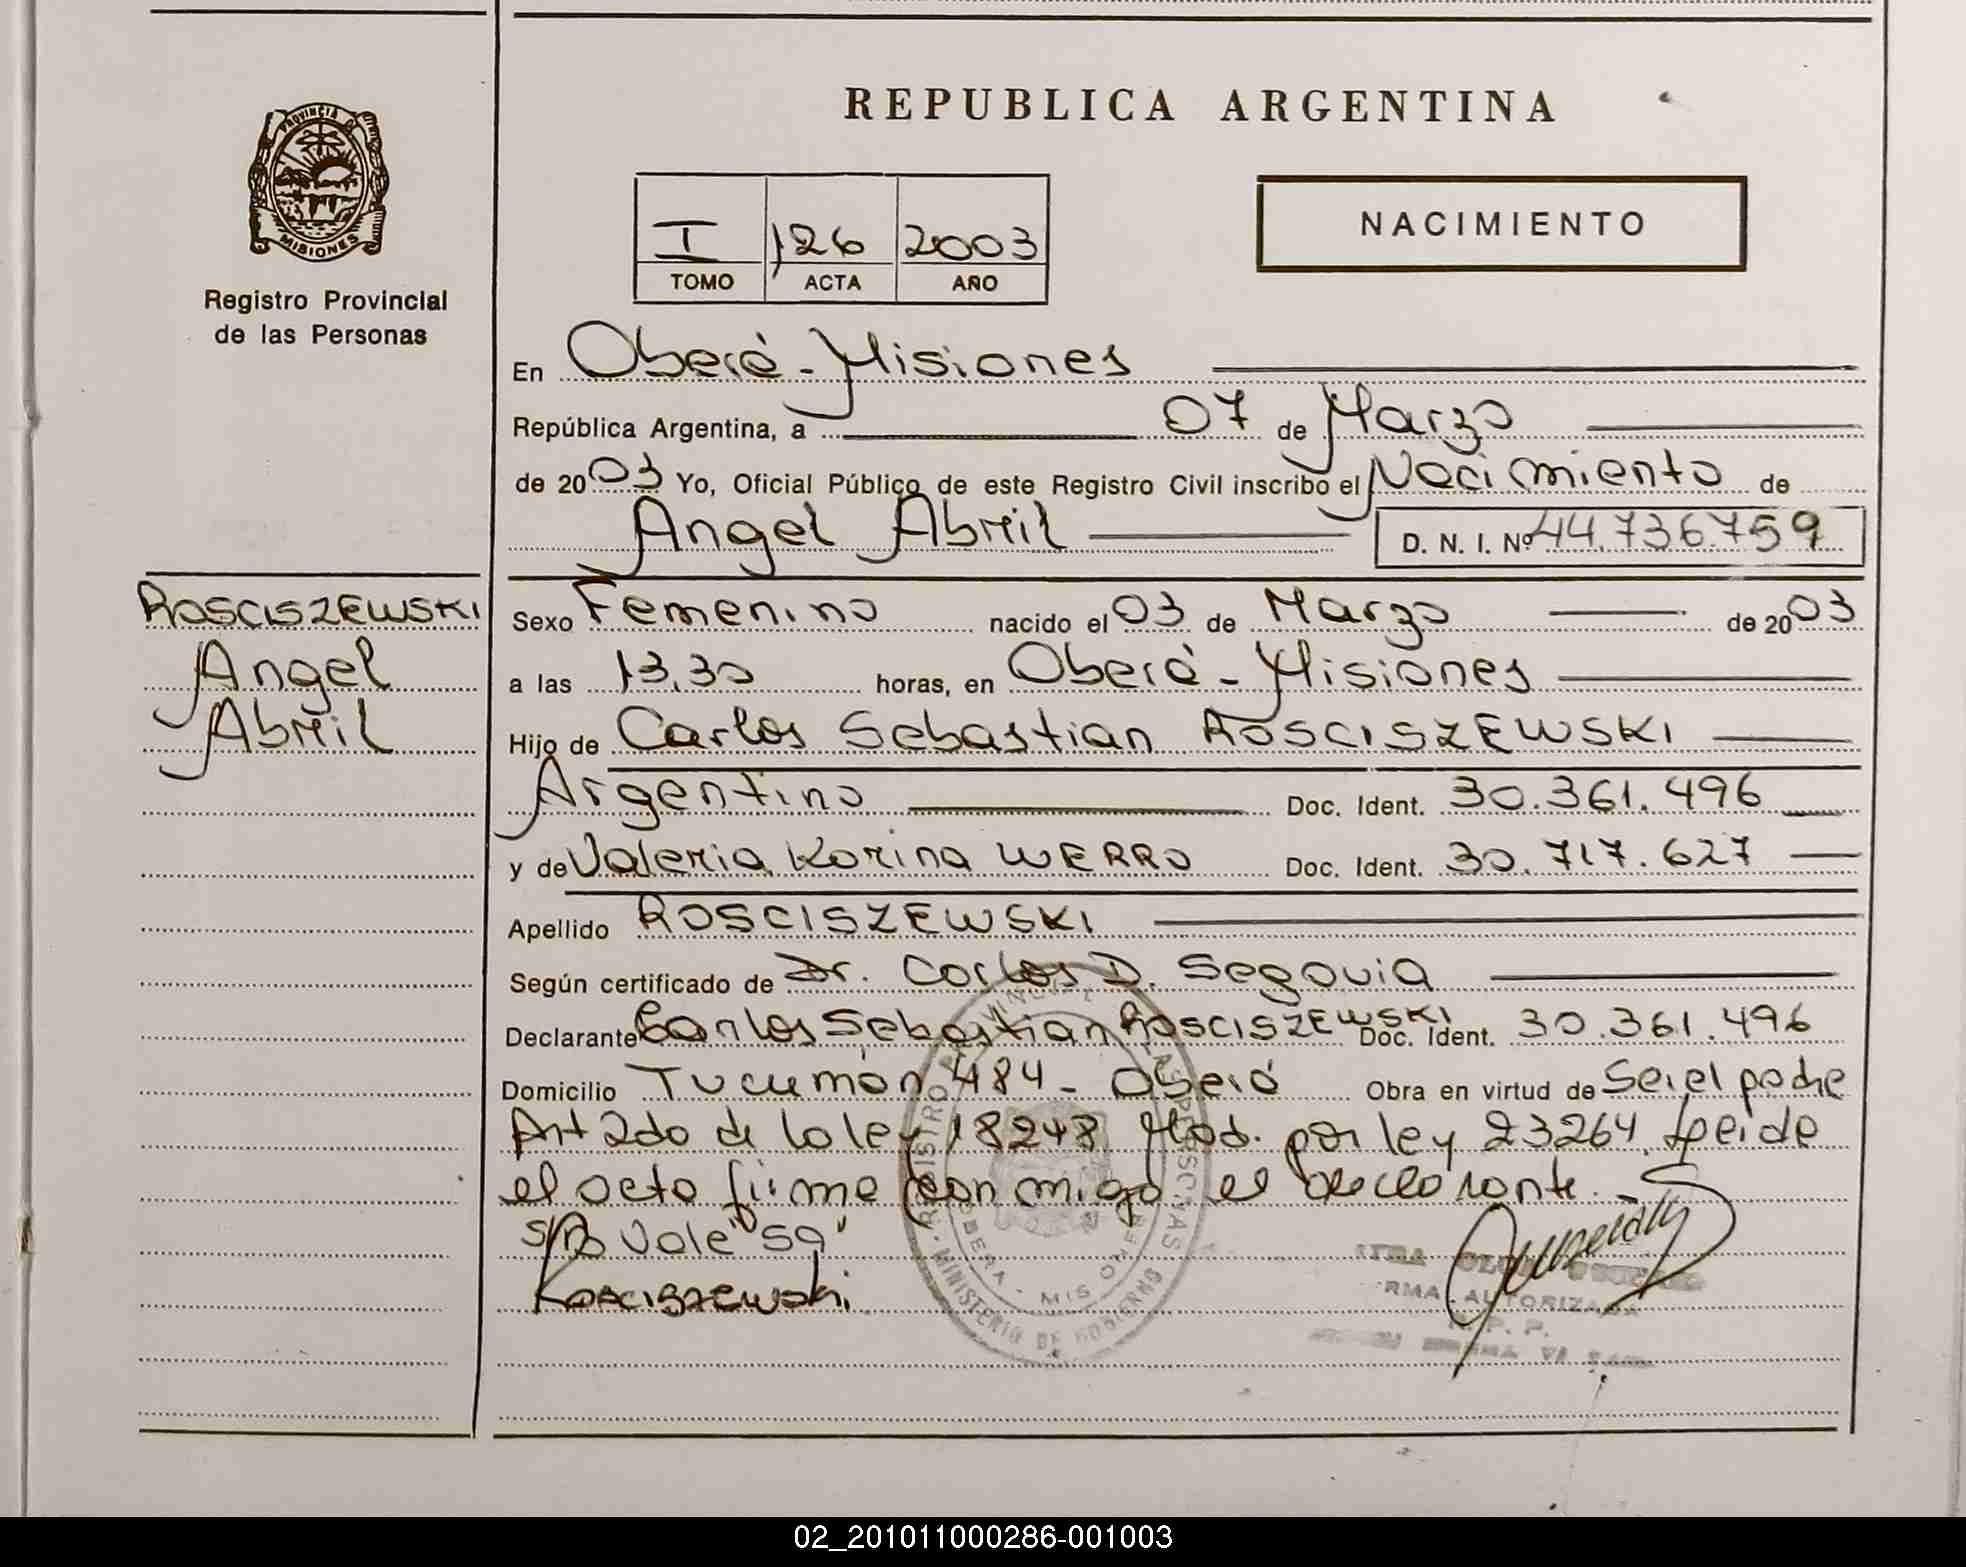 REPUBLICA ARGENTINA
PROVINCIA D
MISIONES
Registro Provincial
de las Personas
I 126 2003
TOMO ACTA AÑO
NACIMIENTO
En Oberá - Misiones
República Argentina, a 07 de Marzo
de 2003 Yo, Oficial Público de este Registro Civil inscribo el Nacimiento de
Angel Abril D. N. I. Nº 44.736.759
ROSCISZEWSKI
Angel
Abril
Sexo Femenino nacido el 03 de Marzo de 2003
a las 13,30 horas, en Oberá - Misiones
Hijo de Carlos Sebastian ROSCISZEWSKI
Argentino Doc. Ident. 30.361.496
y de Valeria Korina WERRO Doc. Ident. 30.717.627
Apellido ROSCISZEWSKI
Según certificado de Dr. Carlos D. Segovia
Declarante Carlos Sebastian ROSCISZEWSKI Doc. Ident. 30.361.496
Domicilio Tucumán 484 - Oberá Obra en virtud de Ser el padre
Art 2do de la ley 18248 Mod. por ley 23264. Leida
el acta firma con migo el declarante.
S/R Vale "59"
Rosciszewski
MINISTERIO DE GOBIERNO
OBERA - MIS
RMA AUTORIZADA
R. P. P.
02_201011000286-001003